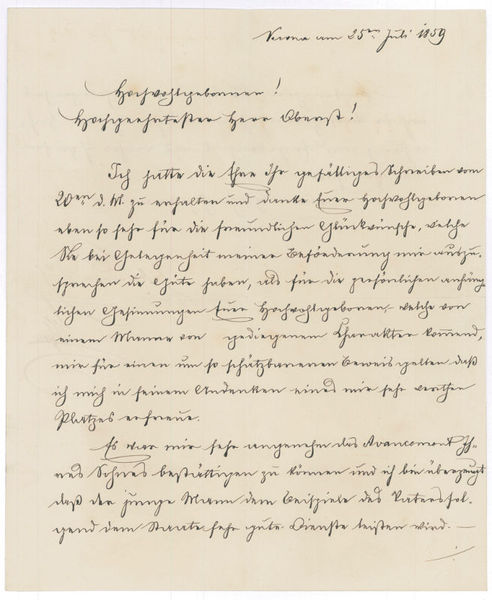 Verona am 25ten Juli 1859
Hochwohlgebornen!
Hochgeehrtester Herr Oberst!
Ich hatte die Ehre Ihr gefälliges Schreiben vom
20ten d. M. zu erhalten und danke Euer Hochwohlgeboren
eben so sehr für die freundlichen Glückwünsche, welche
Sie bei Gelegenheit meiner Beförderung mir auszu-
sprechen die Güte haben, als für die persönlichen anhäng-
lichen Gesinnungen Euer Hochwohlgeboren, welche von
einem Manne von gediegenem Charakter kommend,
mir für einen um so schätzbareren Beweis gelten daß
ich mich in seinem Andenken eines mir sehr werthen
Platzes erfreue.
Es war mir sehr angenehm das Avancement Ih-
res Sohnes bestättigen zu können und ich bin überzeugt
daß der junge Mann dem Beispiele des Vaters fol-
gend dem Staate sehr gute Dienste leisten wird. —